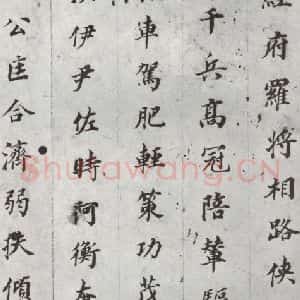 經府羅將相路俠
千兵高冠陪輦驅
車駕肥輕策功茂
伊尹佐時阿衡奄
公匡合濟弱扶傾
Shufawang.CN